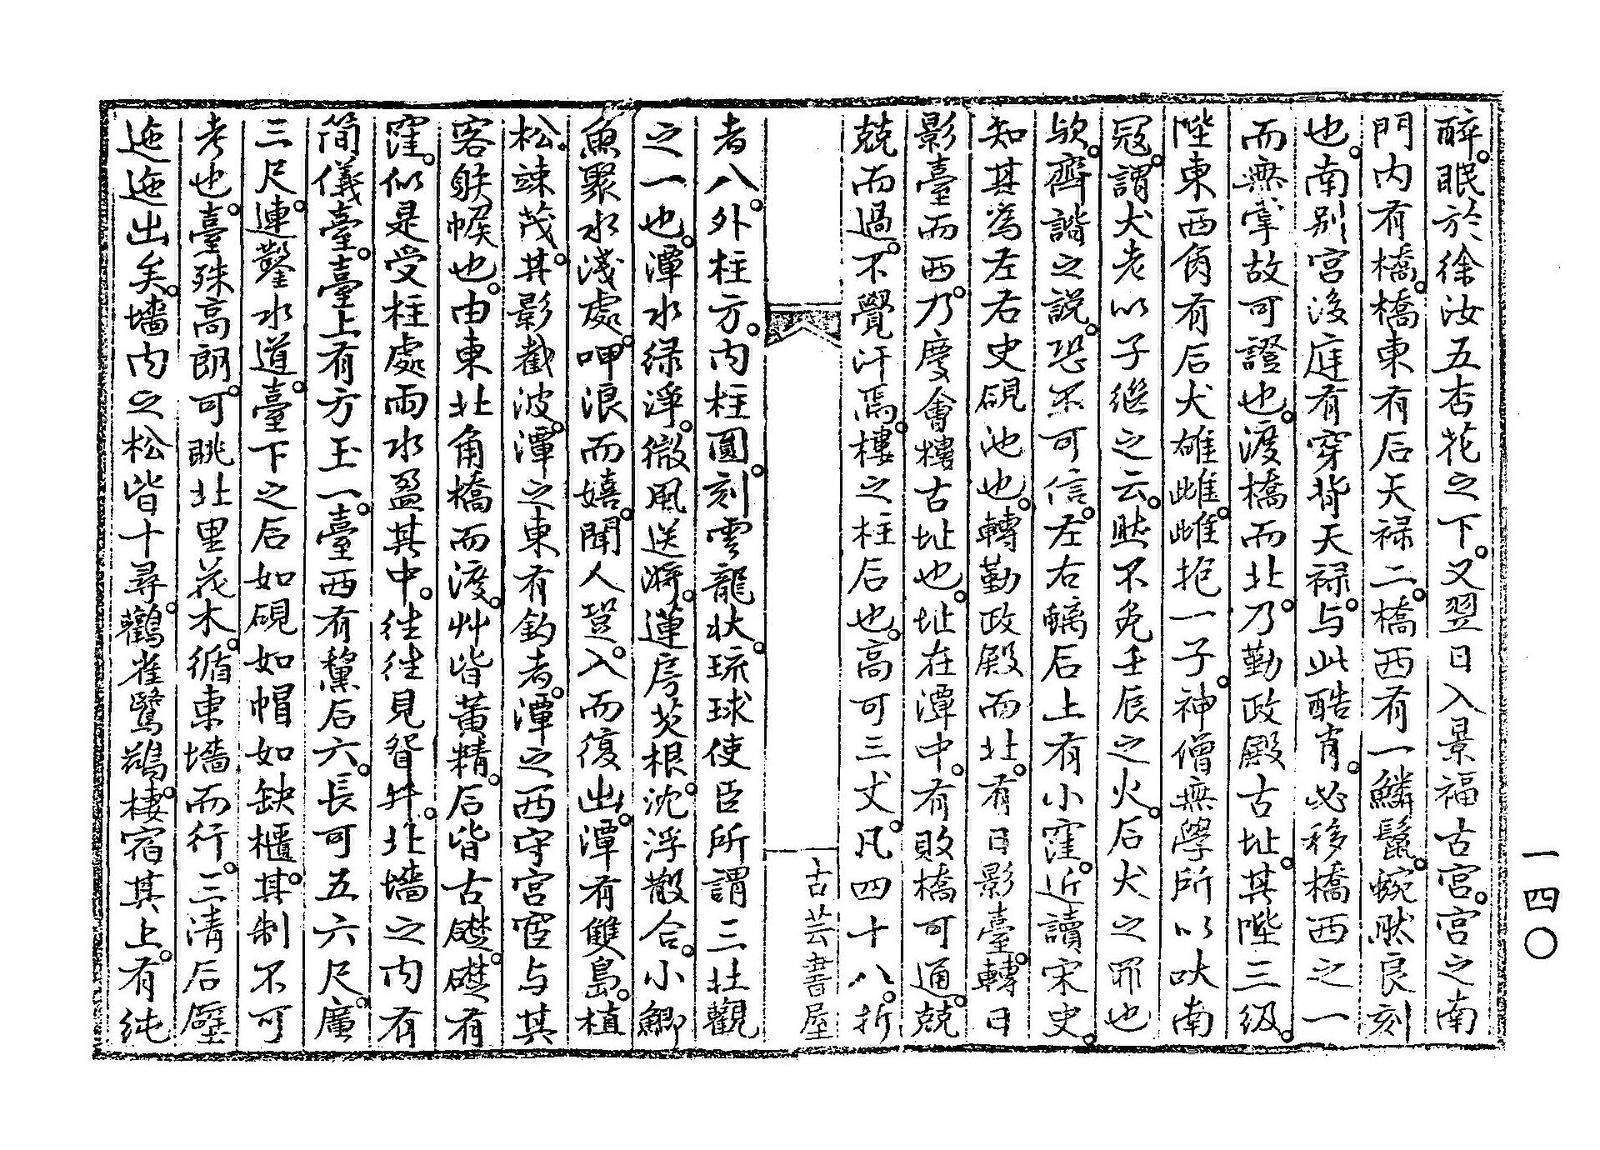 醉。眠於徐汝五杏花之下。又翌日入景福古宮。宮之南
門內有橋。橋東有石天祿二。橋西有一鱗鬣。蜿然良刻
也。南別宮後庭有穿背天祿。与此酷肖。必移橋西之一
而無掌故可證也。渡橋而北。乃勤政殿古址。其陛三級。
陛東西角有石犬雄雌。雌抱一子。神僧無學所以吠南
冦。謂犬老以子継之云。然不免壬辰之火。石犬之罪也
欤。齊諧之説。恐不可信。左右螭石上有小窪。近讀宋史。
知其為左右史硯池也。轉勤政殿而北。有日影臺。轉日
影臺而西。乃慶會樓古址也。址在潭中。有敗橋可通。兢
兢而過。不覺汗焉。樓之柱石也。高可三丈。凡四十八。折
古芸書屋
者八。外柱方。内柱圓。刻雲龍状。琉球使臣所謂三壯觀
之一也。潭水緑淨。微風送漪。蓮房芡根。沈浮散合。小鯽
魚聚水淺處。呷浪而嬉。聞人跫。入而復出。潭有雙島。植
松。竦茂。其影截波。潭之東有釣者。潭之西守宮宦与其
客射帿也。由東北角橋而渡。艸皆黃精。石皆古礎。礎有
窪。似是受柱處雨水盈其中。往往見眢井。北墻之内有
簡儀臺。臺上有方玉一。臺西有黧石六。長可五六尺。廣
三尺。連鑿水道。臺下之石如硯如帽如缺櫃。其制不可
考也。臺殊高朗。可眺北里花木。循東墻而行。三清石壁
迤迤出矣。墻内之松皆十尋。鸛雀鷺鶿。棲宿其上。有純
一四〇